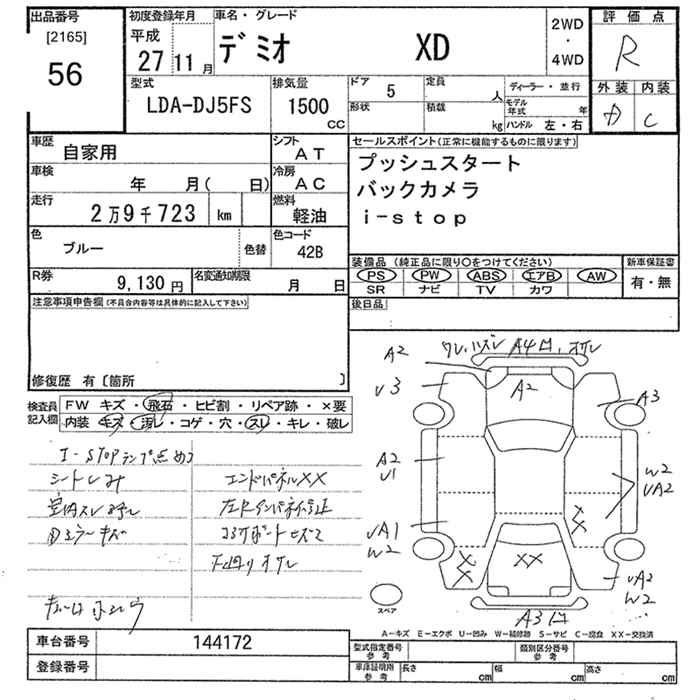 出品番号
[2165]
56
初度登録年月
平成
27 11 月
車名・グレード
デミオ XD
2WD
・
4WD
評価点
R
外装 内装
D C
型式
LDA-DJ5FS
排気量
1500
CC
ドア 5
定員
人
形状
積載
kg
ディーラー・並行
モデル年式 年
ハンドル 左・右
車歴 自家用
シフト AT
車検 年 月( 日)
冷房 AC
走行 2万9千723 km
燃料 軽油
色 ブルー
色替
色コード 42B
R券 9,130 円
名変通知期限 月 日
セールスポイント(正常に機能するものに限ります)
プッシュスタート
バックカメラ
i-stop
装備品(純正品に限り○をつけてください)
PS PW ABS エアB AW
SR ナビ TV カワ
新車保証書
有・無
後日品
注意事項申告欄(不具合内容等は具体的に記入して下さい)
修復歴 有〔箇所 〕
検査員記入欄
FW キズ・飛石・ヒビ割・リペア跡・×要
内装・キズ・汚レ・コゲ・穴・スレ・キレ・破レ
I-STOPランプ点め
シートしみ
室内スレ
ミラーキズ
エンドパネルXX
下廻りサビ
A2
A4
A2
U3
A3
A2
U1
W2
UA2
UA1
W2
XX
XX
XX
UA2
W2
A3
スペア
A-キズ E-エクボ U-凹み W-補修跡 S-サビ C-腐食 XX-交換済
車台番号 144172
登録番号
型式指定番号
参考
類別区分番号
参考
車庫証明用
参考
長さ cm
幅 cm
高さ cm